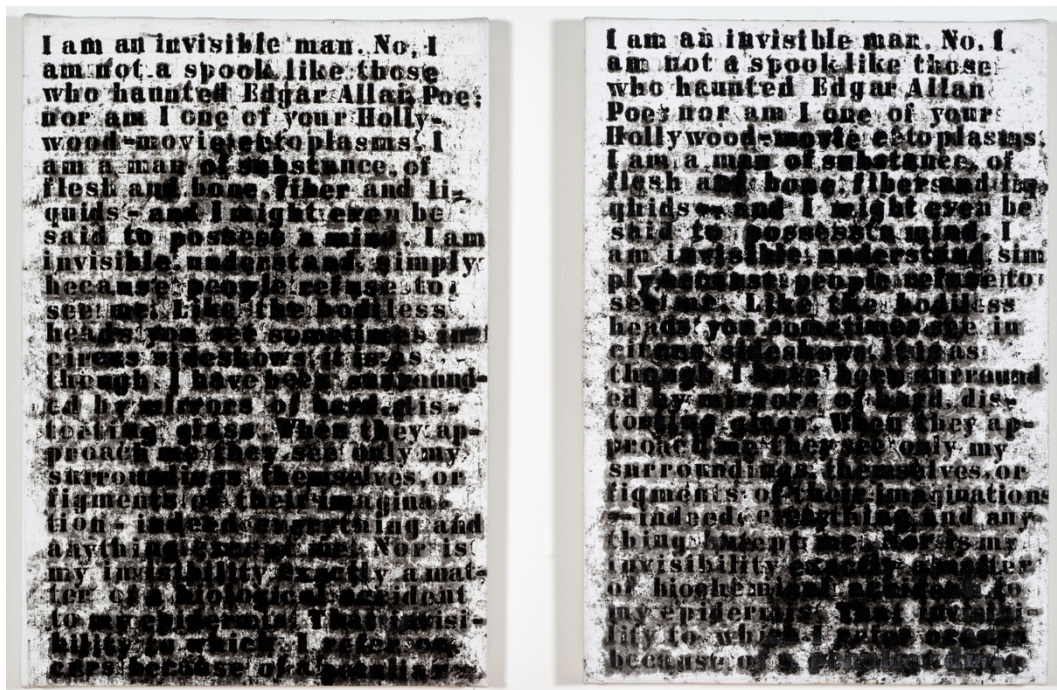 I am an invisible man. No, I
am not a spook like those
who haunted Edgar Allan Poe;
nor am I one of your Holly-
wood-movie ectoplasms. I
am a man of substance, of
flesh and bone, fiber and li-
quids - and I might even be
said to possess a mind. I am
invisible, understand, simply
because people refuse to
see me. Like the bodiless
heads you see sometimes in
circus sideshows, it is as
though I have been surround-
ed by mirrors of hard, dis-
torting glass. When they ap-
proach me they see only my
surroundings, themselves, or
figments of their imagina-
tion - indeed, everything and
anything except me. Nor is
my invisibility exactly a mat-
ter of a biological accident
to my epidermis. That invisi-
bility to which I refer oc-
curs because of a
I am an invisible man. No, I
am not a spook like those
who haunted Edgar Allan
Poe; nor am I one of your
Hollywood-movie ectoplasms.
I am a man of substance, of
flesh and bone, fiber and liq-
quids - and I might even be
said to possess a mind. I
am invisible, understand, sim
ply because people refuse to
see me. Like the bodiless
heads you sometimes see in
circus sideshows, it is as
though I have been surround
ed by mirrors of hard, dis-
torting glass. When they ap-
proach me they see only my
surroundings, themselves, or
figments of their imaginations
- indeed, everything and any-
thing except me. Nor is my
invisibility exactly a matter
of biochemical accident to
my epidermis. That invisibi-
lity to which I refer occurs
because of a peculiar